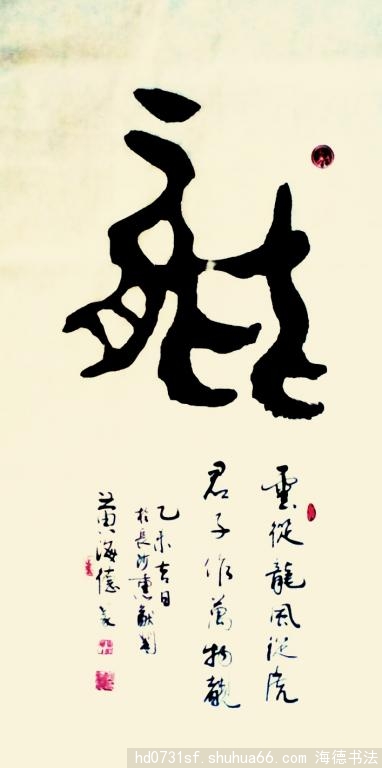 雲從龍風從虎
君子作萬物覩
乙未吉日
於長沙
黄海德
hd0731sf.shuhua66.com 海德书法